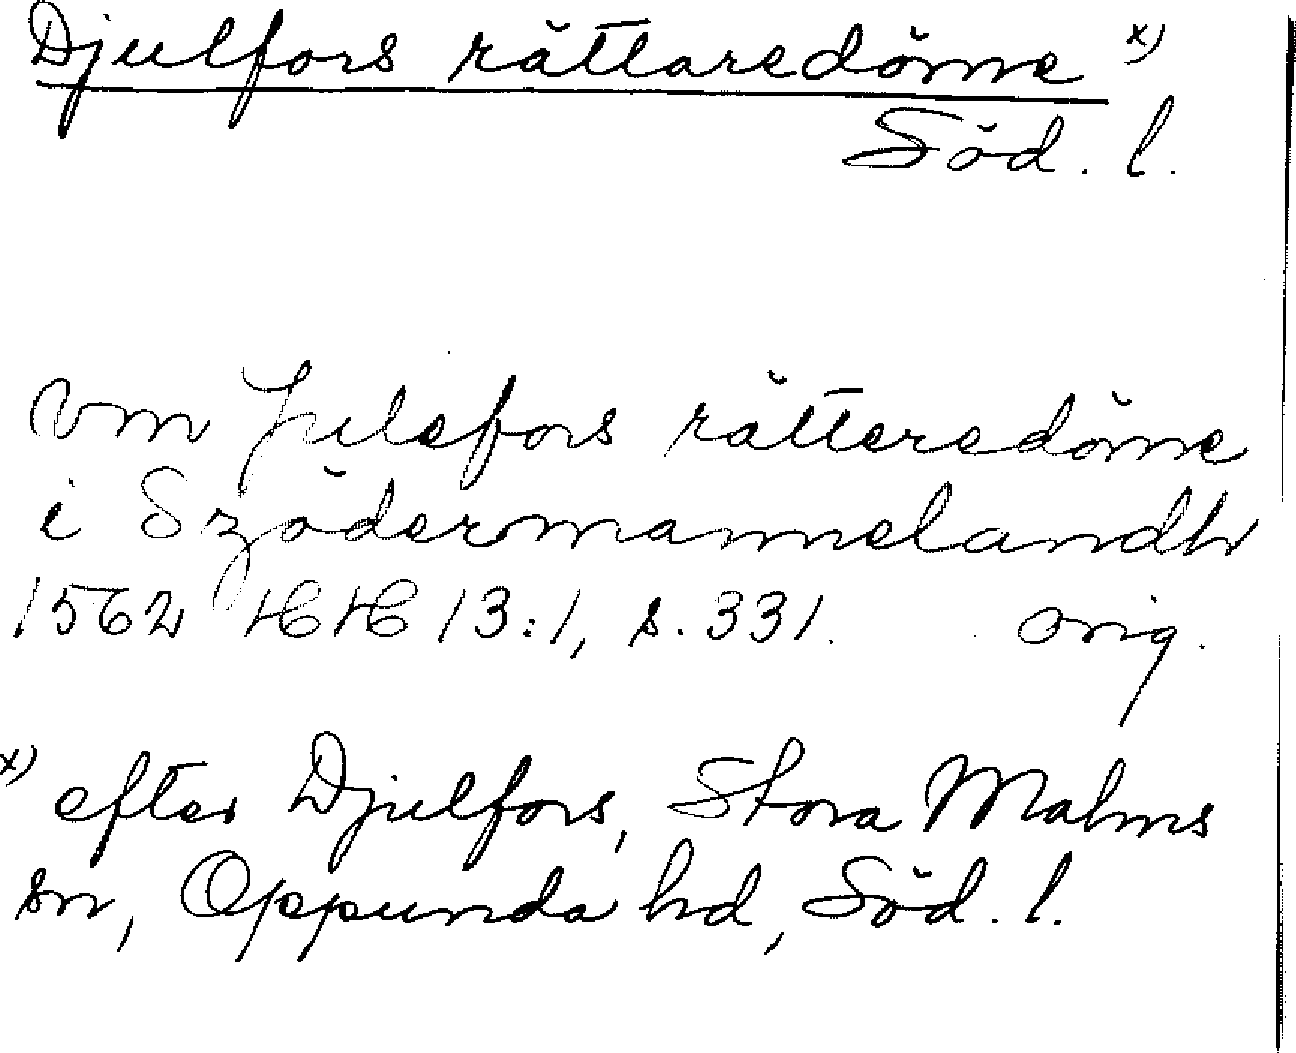 Djulfors rättaredöme x)
Söd. l.
Vm Julefors rätteredöme
i Szödermannelandh
1562 HH 13:1, s. 331. orig.
x) efter Djulfors, Stora Malms
sn, Oppunda hd, Söd. l.